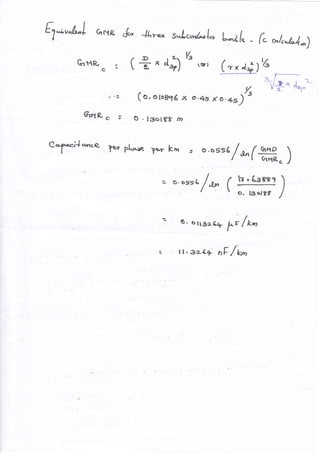 Equivalent GMR for three subconductor bundle - (c calculation)
GMR_c : ( D/2 × d_sp^2 )^1/3 , or, ( r × d_sp^2 )^1/3
3√ D/2 × d_sp 2
= (0.010896 × 0.45 × 0.45)^1/3
GMR_c = 0.130188 m
Capacitance per phase per km = 0.0556 / ln ( GMD / GMR_c )
= 0.0556 / ln ( 17.63889 / 0.130188 )
= 0.0113264 μF/km
= 11.3264 nF/km